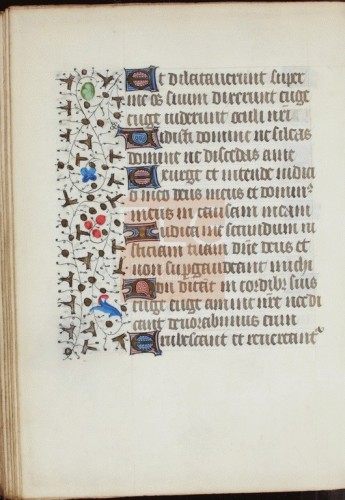 Et dilataverunt super
me os suum dixerunt euge
euge viderunt oculi nr̄i
Vidisti domine ne sileas
domine ne discedas a me
Exurge et intende iudicio
meo deus meus et dominꝰ
meus in causam meam
Iudica me secundum iu
sticiam tuam dn̄e deus et
non supergaudeant michi
Non dicant in cordibꝰ suis
euge euge anime nr̄e nec di
cant devorabimus eum
Erubescant et revereantꝰ